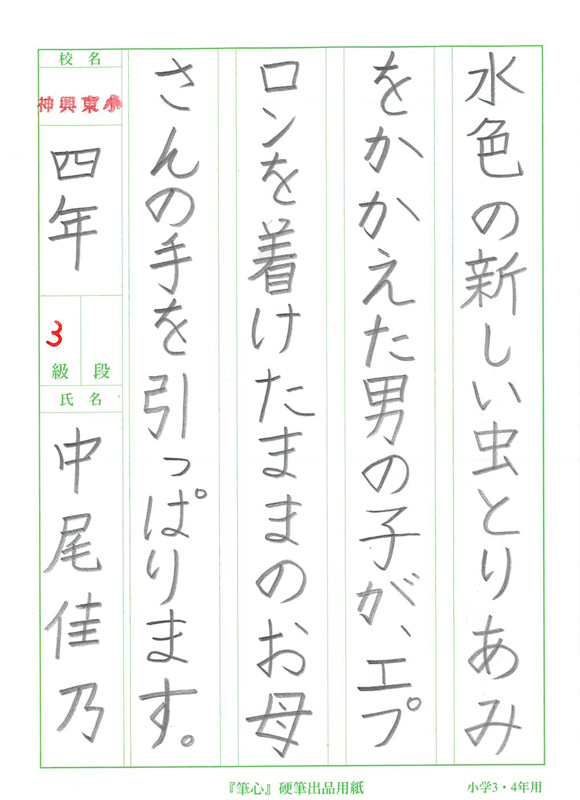 水色の新しい虫とりあみ
をかかえた男の子が、エプ
ロンを着けたままのお母
さんの手を引っぱります。
校名
神興東小
四年
3
級 段
氏名
中尾佳乃
『筆心』硬筆出品用紙
小学3・4年用